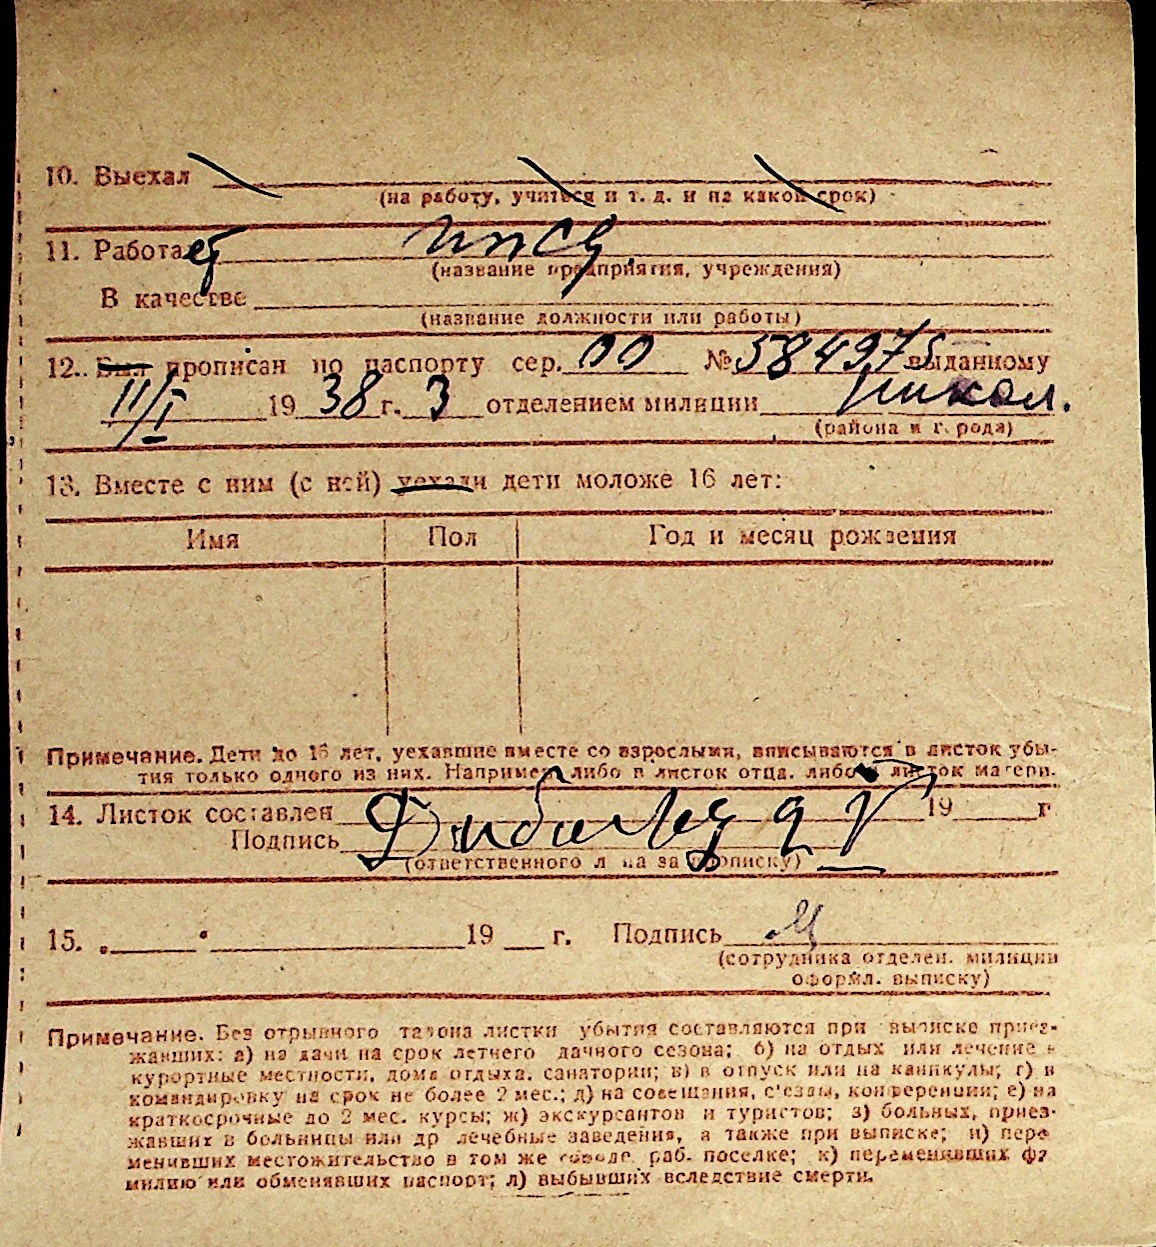 10. Выехал
(на работу, учиться и т. д. и на какой срок)
11. Работает
(название предприятия, учреждения)
В качестве
(название должности или работы)
12. Был прописан по паспорту сер. 00 № 584975 выданному
11/I 1938 г. 3 отделением милиции Никол.
(района и города)
13. Вместе с ним (с ней) уехали дети моложе 16 лет:
Имя Пол Год и месяц рождения
Примечание. Дети до 16 лет, уехавшие вместе со взрослыми, вписываются в листок убы-
тия только одного из них. Например либо в листок отца, либо в листок матери.
14. Листок составлен 19 г
Подпись
(ответственного л на за прописку)
15. „ “ 19 г. Подпись
(сотрудника отделен. милиции
оформл. выписку)
Примечание. Без отрывного талона листки убытия составляются при выписке приез-
жавших: а) на дачи на срок летнего дачного сезона; б) на отдых или лечение в
курортные местности, дома отдыха, санатории; в) в отпуск или на каникулы; г) в
командировку на срок не более 2 мес.; д) на совещания, с'езды, конференции; е) на
краткосрочные до 2 мес. курсы; ж) экскурсантов и туристов; з) больных, приез-
жавших в больницы или др лечебные заведения, а также при выписке; и) пере
менивших местожительство в том же городе, раб. поселке; к) переменивших фа
милию или обменявших паспорт; л) выбывших вследствие смерти.